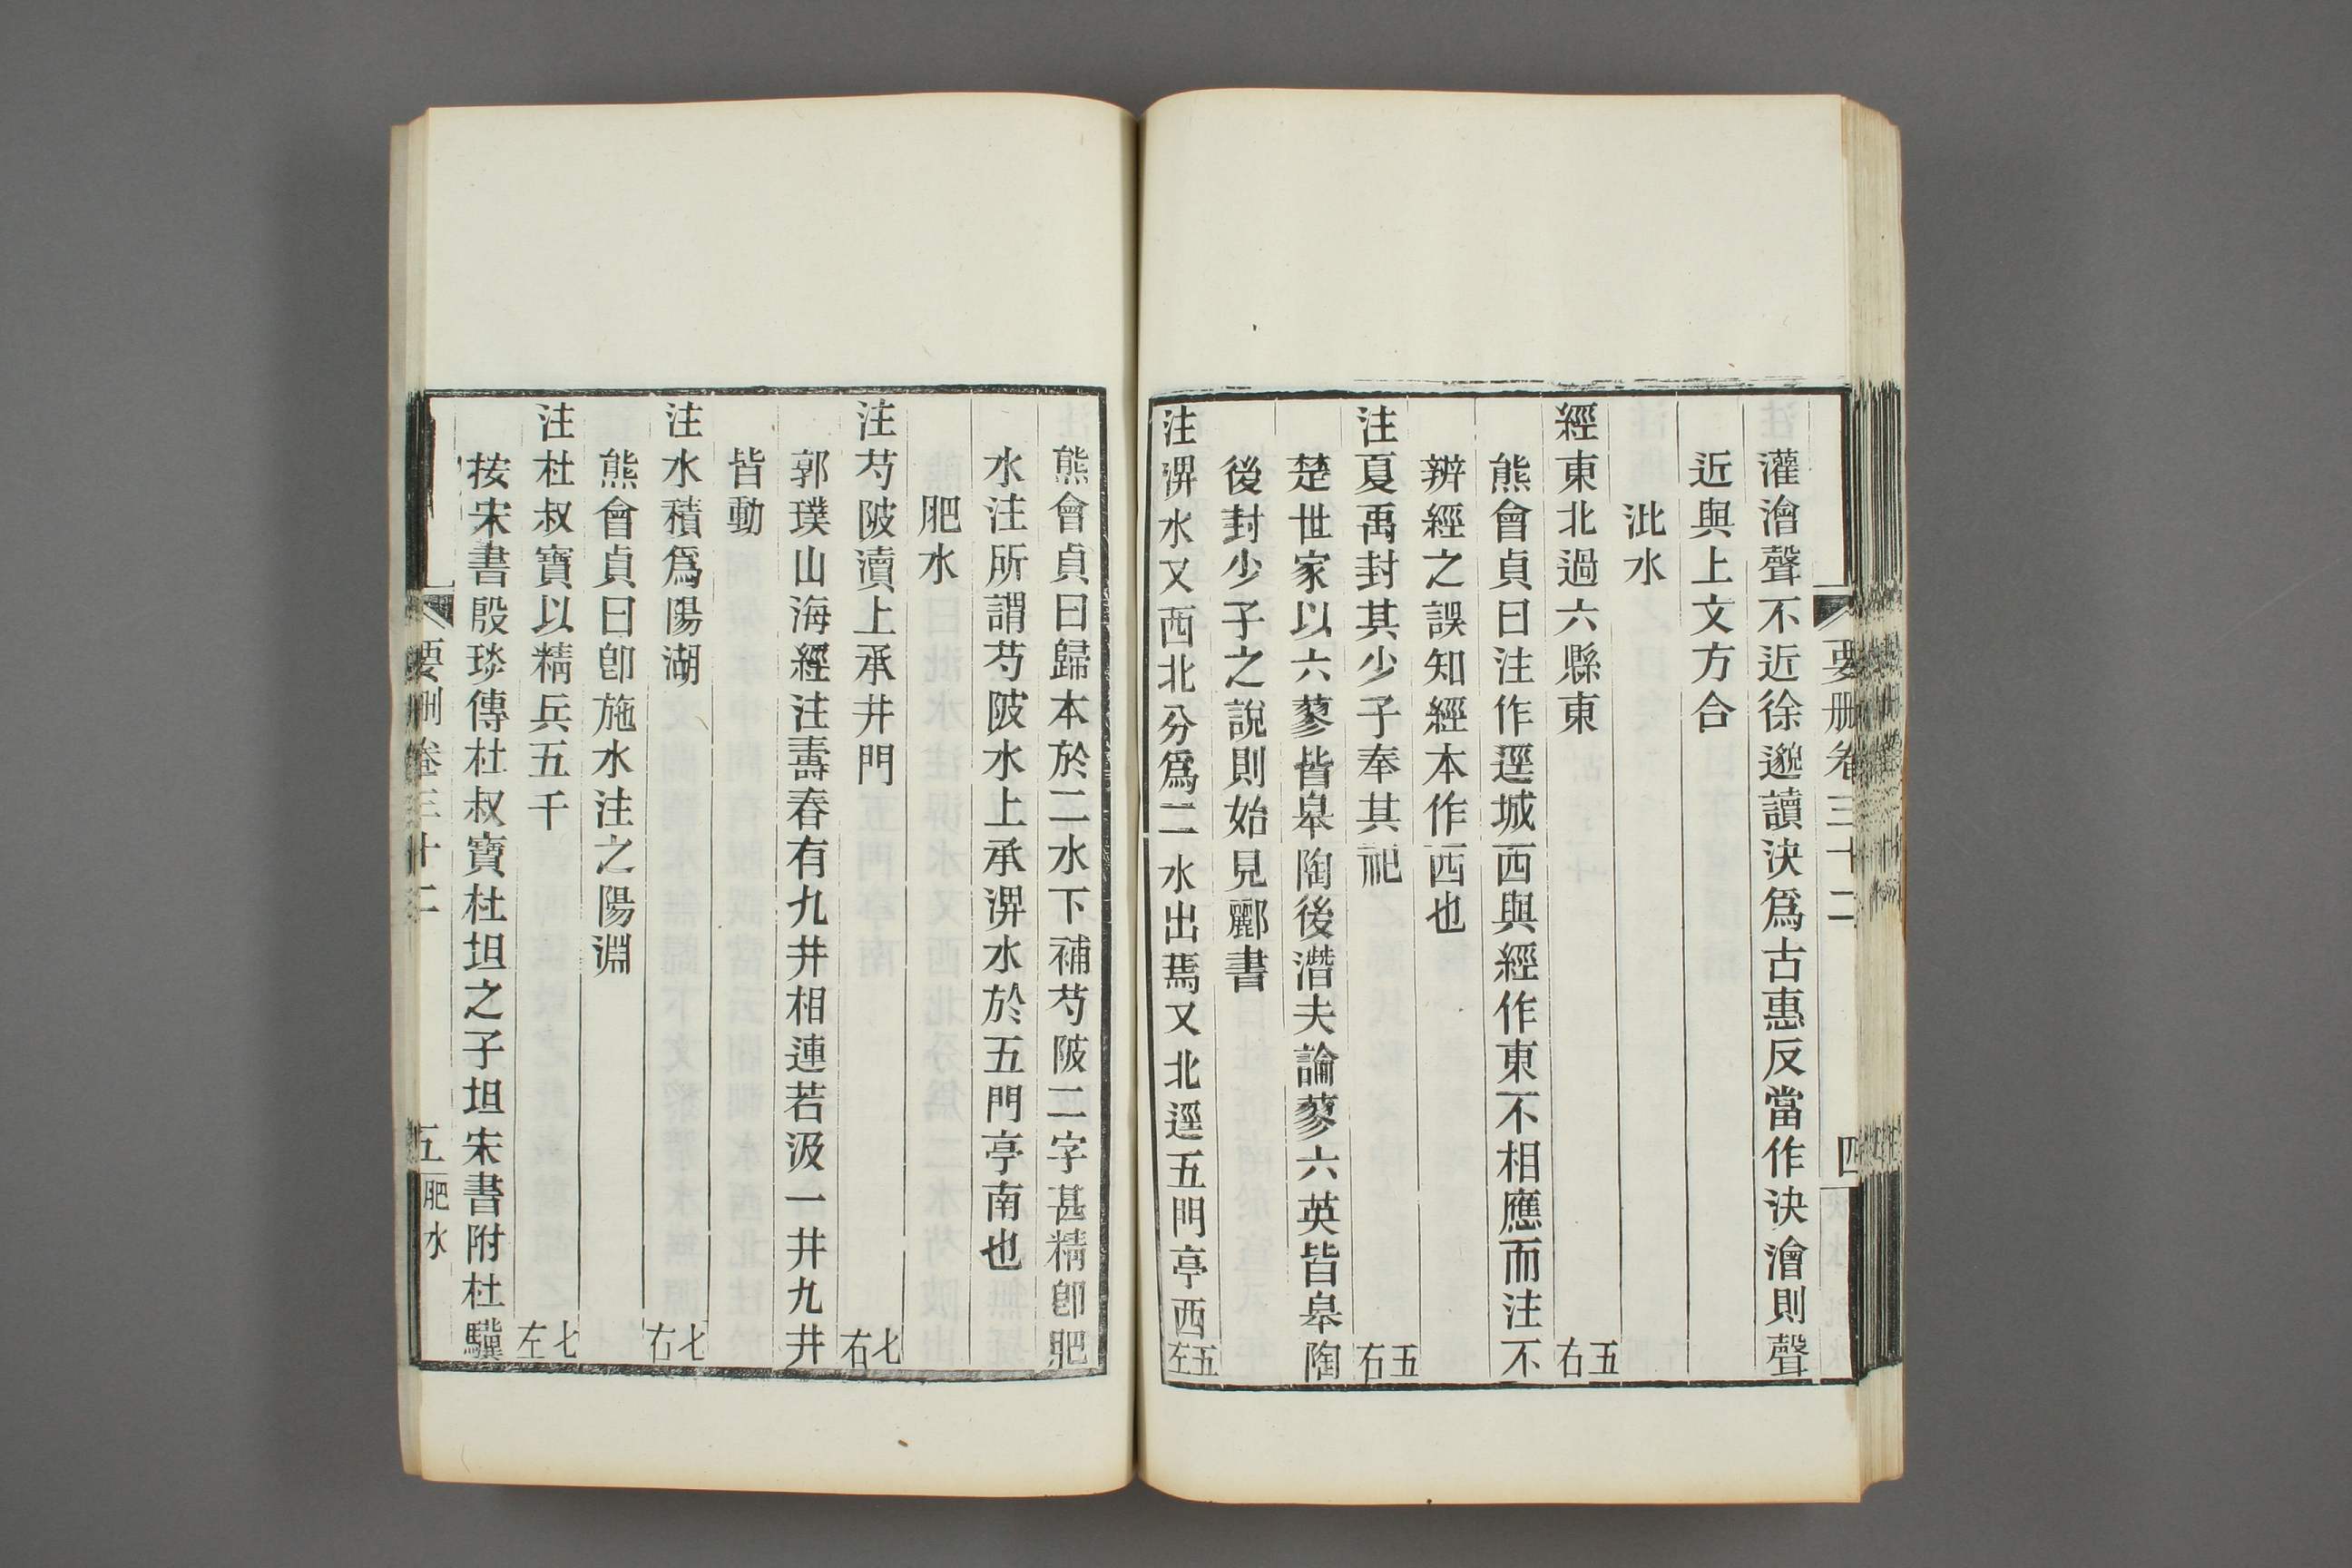 要刪卷三十二 四
灌澮聲不近徐邈讀決爲古惠反當作決澮則聲
近與上文方合
沘水
經東北過六縣東 五右
熊會貞曰注作逕城西與經作東不相應而注不
辨經之誤知經本作西也
注夏禹封其少子奉其祀 五右
楚世家以六蓼皆皋陶後潛夫論蓼六英皆皋陶
後封少子之說則始見酈書
注淠水又西北分爲二水出焉又北逕五門亭西 五左
熊會貞曰歸本於二水下補芍陂二字甚精卽肥
水注所謂芍陂水上承淠水於五門亭南也
肥水
注芍陂瀆上承井門 七右
郭璞山海經注壽春有九井相連若汲一井九井
皆動
注水積爲陽湖 七右
熊會貞曰卽施水注之陽淵
注杜叔寶以精兵五千 七左
按宋書殷琰傳杜叔寶杜坦之子坦宋書附杜驥
要刪卷三十二 五 肥水